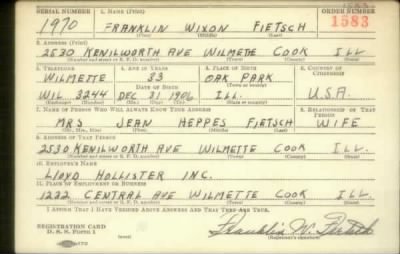 SERIAL NUMBER 1. NAME (Print) ORDER NUMBER
1970 FRANKLIN WIXON FIETSCH 1583
(First) (Middle) (Last)
2. ADDRESS (Print)
2530 KENILWORTH AVE WILMETTE COOK ILL
(Number and street or R. F. D. number) (Town) (County) (State)
3. TELEPHONE 4. AGE IN YEARS 5. PLACE OF BIRTH 6. COUNTRY OF CITIZENSHIP
WILMETTE 33 OAK PARK
DATE OF BIRTH (Town or county)
WIL 3244 DEC 21 1906 ILL. U.S.A.
(Exchange) (Number) (Mo.) (Day) (Yr.) (State or country)
7. NAME OF PERSON WHO WILL ALWAYS KNOW YOUR ADDRESS 8. RELATIONSHIP OF THAT PERSON
MRS JEAN HEPPES FIETSCH WIFE
(Mr., Mrs., Miss) (First) (Middle) (Last)
9. ADDRESS OF THAT PERSON
2530 KENILWORTH AVE WILMETTE COOK ILL
(Number and street or R. F. D. number) (Town) (County) (State)
10. EMPLOYER'S NAME
LLOYD HOLLISTER INC.
11. PLACE OF EMPLOYMENT OR BUSINESS
1232 CENTRAL AVE WILMETTE COOK ILL.
(Number and street or R. F. D. number) (Town) (County) (State)
I AFFIRM THAT I HAVE VERIFIED ABOVE ANSWERS AND THAT THEY ARE TRUE.
REGISTRATION CARD
D. S. S. FORM 1 Franklin W. Fietsch
(Registrant's signature)